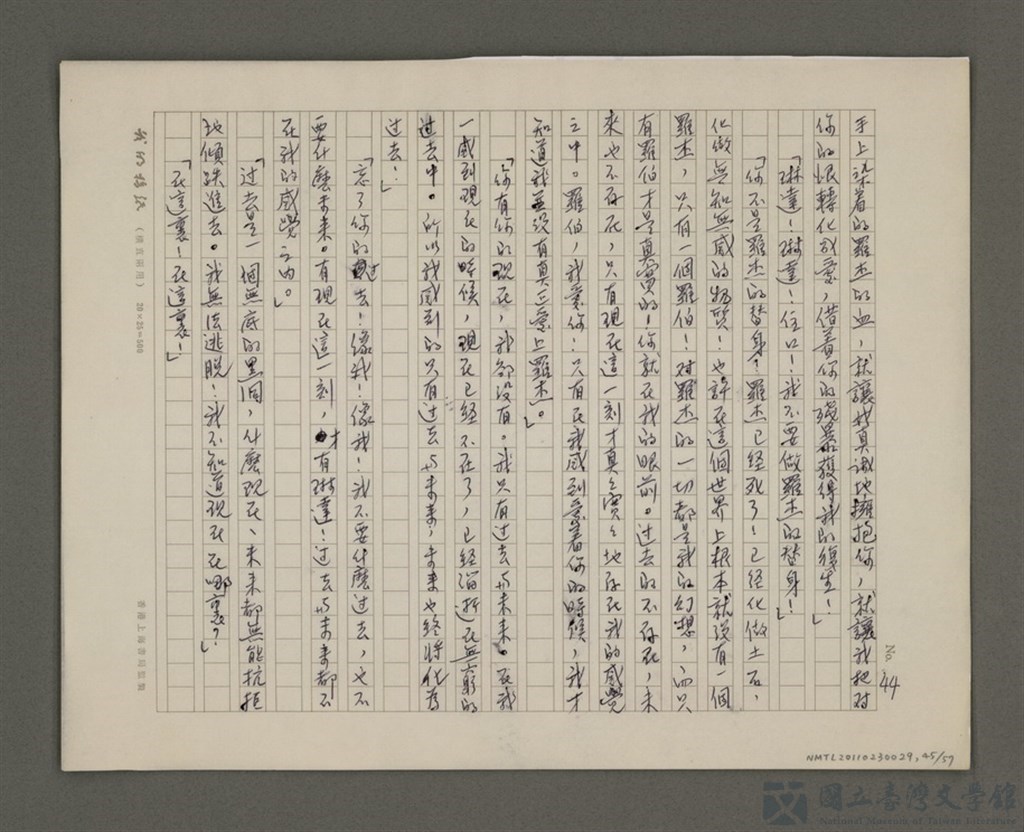 No. 44
手上染着的羅杰的血，就讓我真誠地擁抱你，就讓我把对
你的恨轉化成愛，借着你的殘暴獲得我的復生！」
「琳達！琳達！住口！我不要做羅杰的替身！」
「你不是羅杰的替身！羅杰已経死了！已经化做土石，
化做無知無感的物質！也許在這個世界上根本就沒有一個
羅杰，只有一個羅伯！对羅杰的一切都是我的幻想，而只
有羅伯才是真實的！你就在我的眼前。过去的不存在，未
來也不存在，只有現在這一刻才真真實實地存在我的感覺
之中。羅伯，我愛你！只有在我感到愛着你的時候，我才
知道我並沒有真正愛上羅杰。」
「你有你的現在，我卻沒有。我只有过去与未来。在我
一感到現在的時候，現在已經不在了，已經消逝在無窮的
过去中。所以我感到的只有过去与未来，未来也終將化為
过去！」
「忘了你的过去！像我！像我！我不要什麼过去，也不
要什麼未来。有現在這一刻，才有琳達！过去与未来都不
在我的感覺之内。」
「过去是一個無底的黑洞，什麼現在、未来都無能抗拒
地傾跌進去。我無法逃脫！我不知道現在在哪裏？」
「在這裏！在這裏！」
(橫直兩用) 20×25=500
香港上海書局監製
NMTL20110230029, 45/57
國立臺灣文學館
National Museum of Taiwan Literature